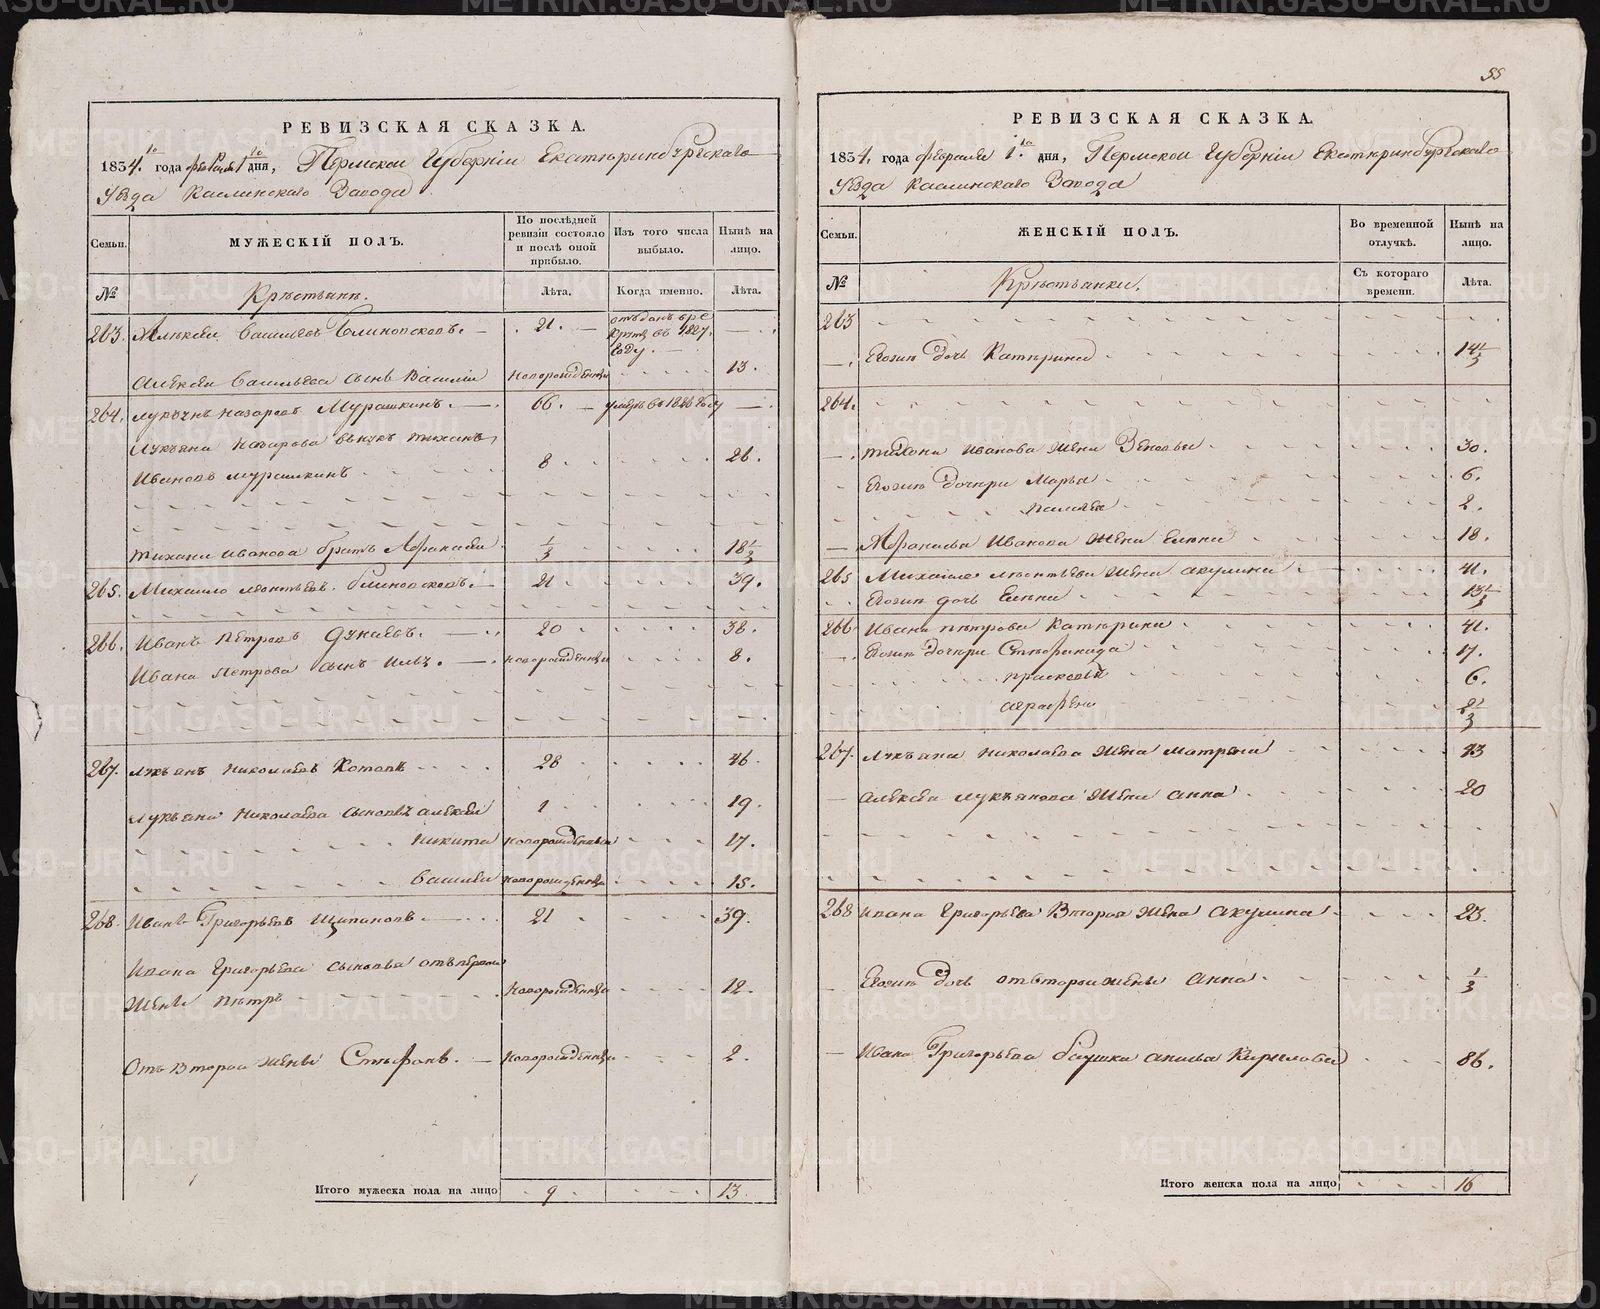 55
РЕВИЗСКАЯ СКАЗКА.
1834го года февраля 1го дня, Пермской Губерніи Екатеринбургскаго
Уѣзда Каслинскаго Завода
Семьи. МУЖЕСКІЙ ПОЛЪ. По послѣдней ревизіи состояло и послѣ оной прибыло. Изъ того числа выбыло. Нынѣ на лицо.
№ Крестьянъ. Лѣта. Когда именно. Лѣта.
263. Алексѣй Васильевъ Блиновсковъ. 21. отъданъ в ре
крты въ 1827.
году.
Алексѣя Васильева сынъ Василій новорожденный 13.
264. Лукъянъ Назаровъ Мурашкинъ. 66. умеръ въ 1826 году
Лукъяна Назарова внукъ Тиханъ
Ивановъ Мурашкинъ 8 26.
Тихана Иванова братъ Афанасей 1/2 18 1/2
265. Михайло Леонтьевъ Блиновсковъ. 21 39.
266. Иванъ Петровъ Дунаевъ. 20 38.
Ивана Петрова сынъ Илья. новорожденный 8.
267. Лукъянъ Николаевъ Котовъ 28 46.
Лукъяна Николаева сыновья Алексѣй 1 19.
Никита новорожденный 17.
Василей новорожденный 15.
268. Иванъ Григорьевъ Щипановъ. 21 39.
Ивана Григорьева сыновья отъ первой
жены Петръ новорожденный 12.
Отъ второй жены Стефанъ. новорожденный 2.
Итого мужеска пола на лицо 9. 13.
РЕВИЗСКАЯ СКАЗКА.
1834. года февраля 1го дня, Пермской Губерніи Екатеринбургскаго
Уѣзда Каслинскаго Завода
Семьи. ЖЕНСКІЙ ПОЛЪ. Во временной отлучкѣ. Нынѣ на лицо.
№ Крестьянки. Съ котораго времени. Лѣта.
263
Егожъ дочь Катерина 14 1/2
264.
Тихана Иванова жена Зеновья 30.
Егожъ дочери Марья 6.
2.
Афанасья Иванова жена Елена 18.
265 Михайло Леонтьева жена Акулина 41.
Егожъ дочь Елена 13 1/2
266 Ивана Петрова Катерина 41.
Егожъ дочери Стефанида 17.
Прасковья 6.
Аграфена 2 1/2
267. Лукъяна Николаева жена Матрена 43
Алексѣя Лукъянова жена Анна 20
268 Ивана Григорьева вторая жена Акулина 23.
Егожъ дочь отъ второй жены Анна 1/2
Ивана Григорьева баушка Кирилова 86.
Итого женска пола на лицо 16